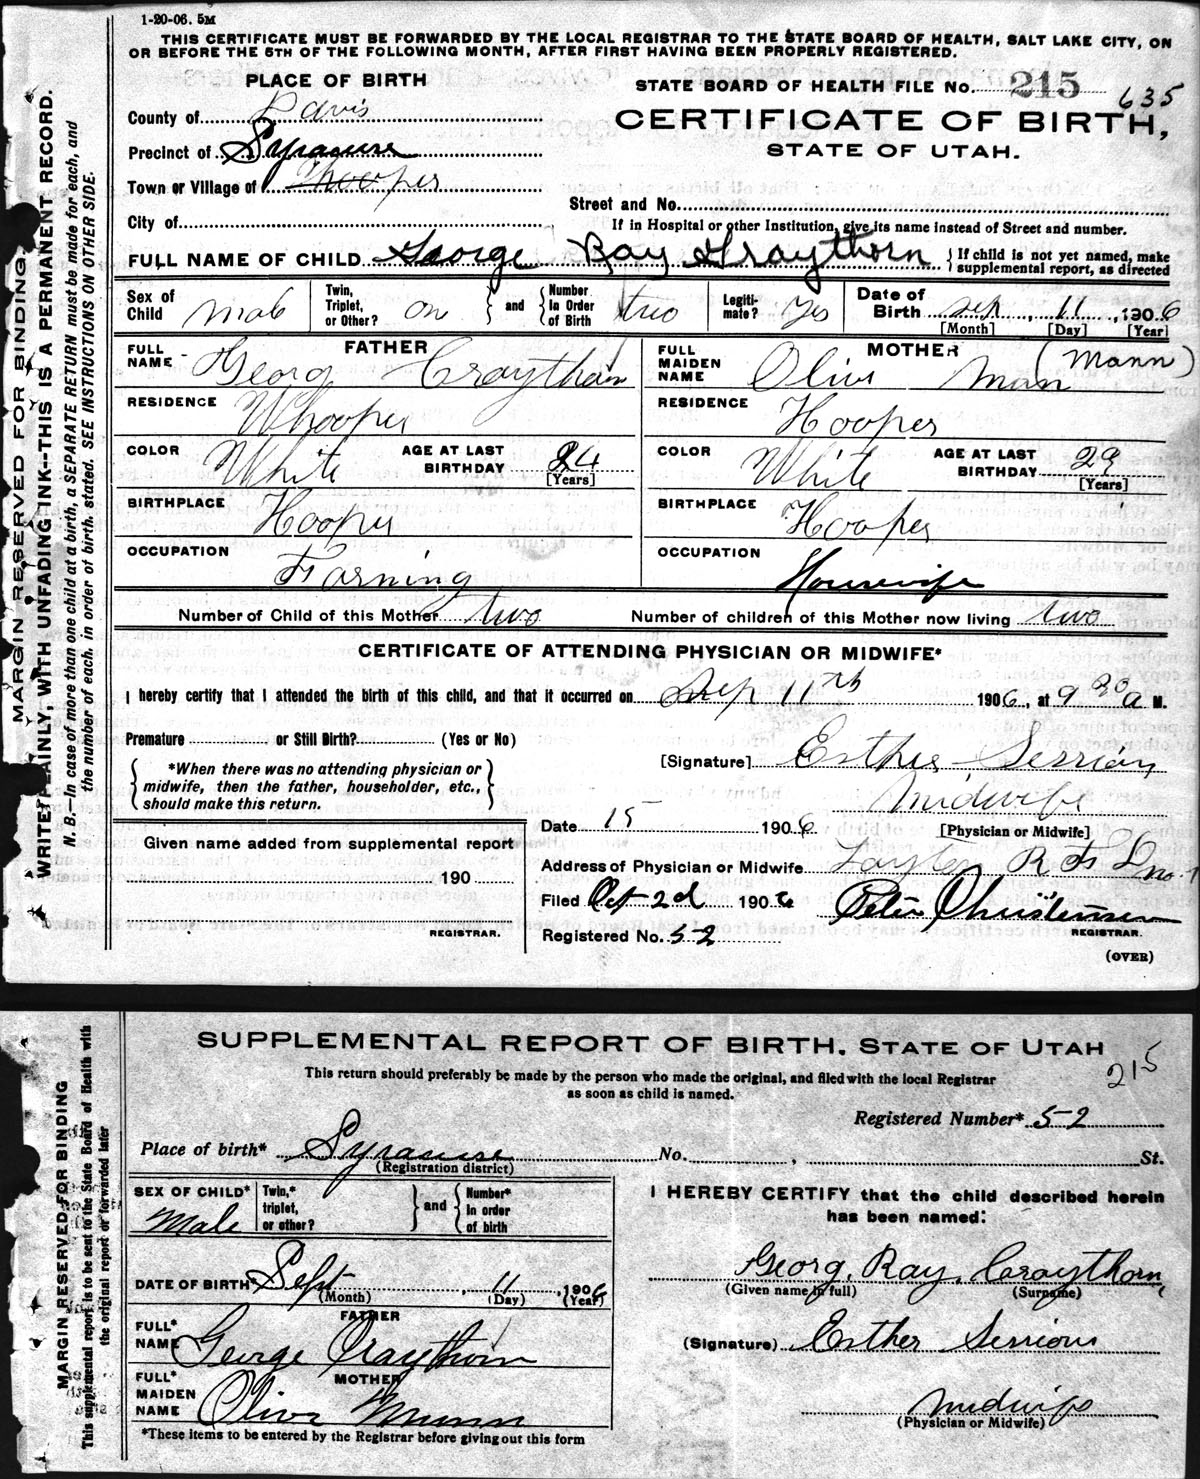 1-20-06. 5M
THIS CERTIFICATE MUST BE FORWARDED BY THE LOCAL REGISTRAR TO THE STATE BOARD OF HEALTH, SALT LAKE CITY, ON
OR BEFORE THE 5TH OF THE FOLLOWING MONTH, AFTER FIRST HAVING BEEN PROPERLY REGISTERED.
MARGIN RESERVED FOR BINDING.
WRITE PLAINLY, WITH UNFADING INK--THIS IS A PERMANENT RECORD.
N. B.—In case of more than one child at a birth, a SEPARATE RETURN must be made for each, and
the number of each, in order of birth, stated. SEE INSTRUCTIONS ON OTHER SIDE.
PLACE OF BIRTH
STATE BOARD OF HEALTH FILE No. 215 635
County of Davis
CERTIFICATE OF BIRTH,
Precinct of Syracuse
STATE OF UTAH.
Town or Village of Whooper
Street and No.
City of
If in Hospital or other Institution, give its name instead of Street and number.
FULL NAME OF CHILD George Ray Graythorn { If child is not yet named, make
supplemental report, as directed
Sex of Child Male
Twin, Triplet, or Other? on } and { Number In Order of Birth two
Legitimate? Yes
Date of Birth Sep, 11, 1906
[Month] [Day] [Year]
FATHER
FULL NAME Georg Craythorn
MOTHER
FULL MAIDEN NAME Olive Man (Mann)
RESIDENCE Whooper
RESIDENCE Hooper
COLOR White AGE AT LAST BIRTHDAY 24 [Years]
COLOR White AGE AT LAST BIRTHDAY 29 [Years]
BIRTHPLACE Hooper
BIRTHPLACE Hooper
OCCUPATION Farning
OCCUPATION Housewife
Number of Child of this Mother two Number of children of this Mother now living two
CERTIFICATE OF ATTENDING PHYSICIAN OR MIDWIFE*
I hereby certify that I attended the birth of this child, and that it occurred on Sep 11th 1906, at 9 30 a M.
Premature or Still Birth? (Yes or No)
[Signature] Esther Sessions
{ *When there was no attending physician or
midwife, then the father, householder, etc.,
should make this return. }
Midwife
[Physician or Midwife]
Date 15 1906
Given name added from supplemental report
190
REGISTRAR.
Address of Physician or Midwife Layton R F D no-1
Filed Oct 2d 1906 Peter Christensen
REGISTRAR.
Registered No. 52
(OVER)
SUPPLEMENTAL REPORT OF BIRTH. STATE OF UTAH
215
This return should preferably be made by the person who made the original, and filed with the local Registrar
as soon as child is named.
MARGIN RESERVED FOR BINDING
This supplemental report is to be sent to the State Board of Health with
the original report or forwarded later
Registered Number* 52
Place of birth* Syracuse No. , St.
(Registration district)
SEX OF CHILD* Male
Twin,* triplet, or other? } and { Number* In order of birth
I HEREBY CERTIFY that the child described herein
has been named:
DATE OF BIRTH* Sept, 11, 1906
(Month) (Day) (Year)
Georg, Ray, Craythorn,
(Given name in full) (Surname)
FATHER
FULL* NAME George Craythorn
(Signature) Esther Sessions
MOTHER
FULL* MAIDEN NAME Olive Munn
Midwife
(Physician or Midwife)
*These items to be entered by the Registrar before giving out this form